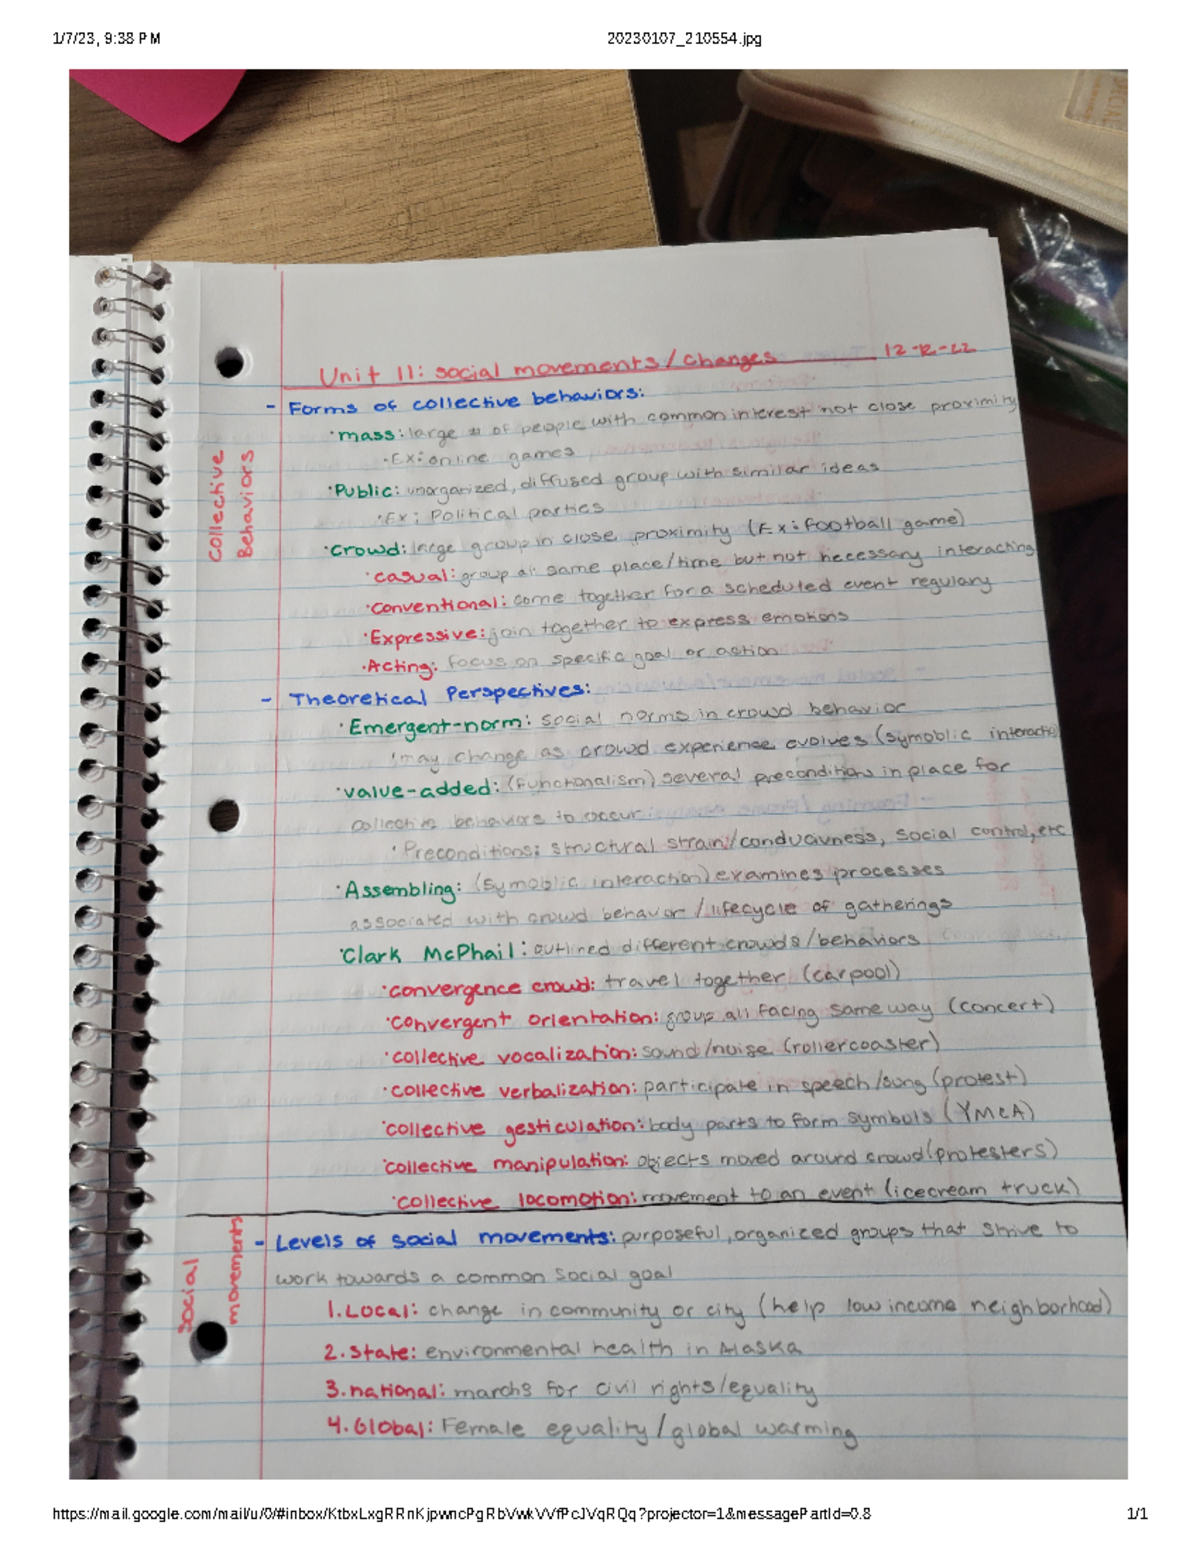 1/7/23, 9:38 PM 20230107_210554.jpg
Unit 11: social movements/changes 12-12-22
Collective Behaviors
- Forms of collective behaviors:
·mass: large # of people with common interest not close proximity
·Ex: online games
·Public: unorganized, diffused group with similar ideas
·Ex: Political parties
·Crowd: large group in close proximity (Ex: football game)
·casual: group at same place/time but not necessary interacting
·Conventional: come together for a scheduled event regulary
·Expressive: join together to express emotions
·Acting: focus on specific goal or action
- Theoretical Perspectives:
·Emergent-norm: social norms in crowd behavior
may change as crowd experience evolves (symoblic interactio
·value-added: (functionalism) several preconditions in place for
collective behaviors to occur
·Preconditions: structural strain/conducivness, social control, etc
·Assembling: (symoblic interaction) examines processes
associated with crowd behavior / lifecycle of gatherings
·Clark McPhail: outlined different crowds/behaviors
·convergence crowd: travel together (carpool)
·convergent orientation: group all facing same way (concert)
·collective vocalization: sound/noise (rollercoaster)
·collective verbalization: participate in speech/song (protest)
·collective gesticulation: body parts to form symbols (YMCA)
·collective manipulation: objects moved around crowd (protesters)
·collective locomotion: movement to an event (icecream truck)
Social movements
- Levels of social movements: purposeful, organized groups that strive to
work towards a common social goal
1. Local: change in community or city (help low income neighborhood)
2. State: environmental health in Alaska
3. national: marchs for civil rights/equality
4. Global: Female equality / global warming
https://mail.google.com/mail/u/0/#inbox/KtbxLxgRRnKjpwncPgRbVwkVVfPcJVqRQq?projector=1&messagePartId=0.8 1/1